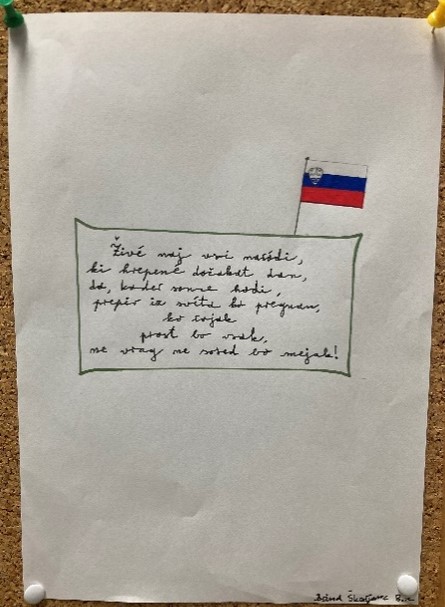 Živé naj vsi naródi,
ki hrepené dočakat dan,
da, koder sonce hodi,
prepir iz svéta bo pregnan,
ko rojak
prost bo vsak,
ne vrag, ne sosed bo mejak!